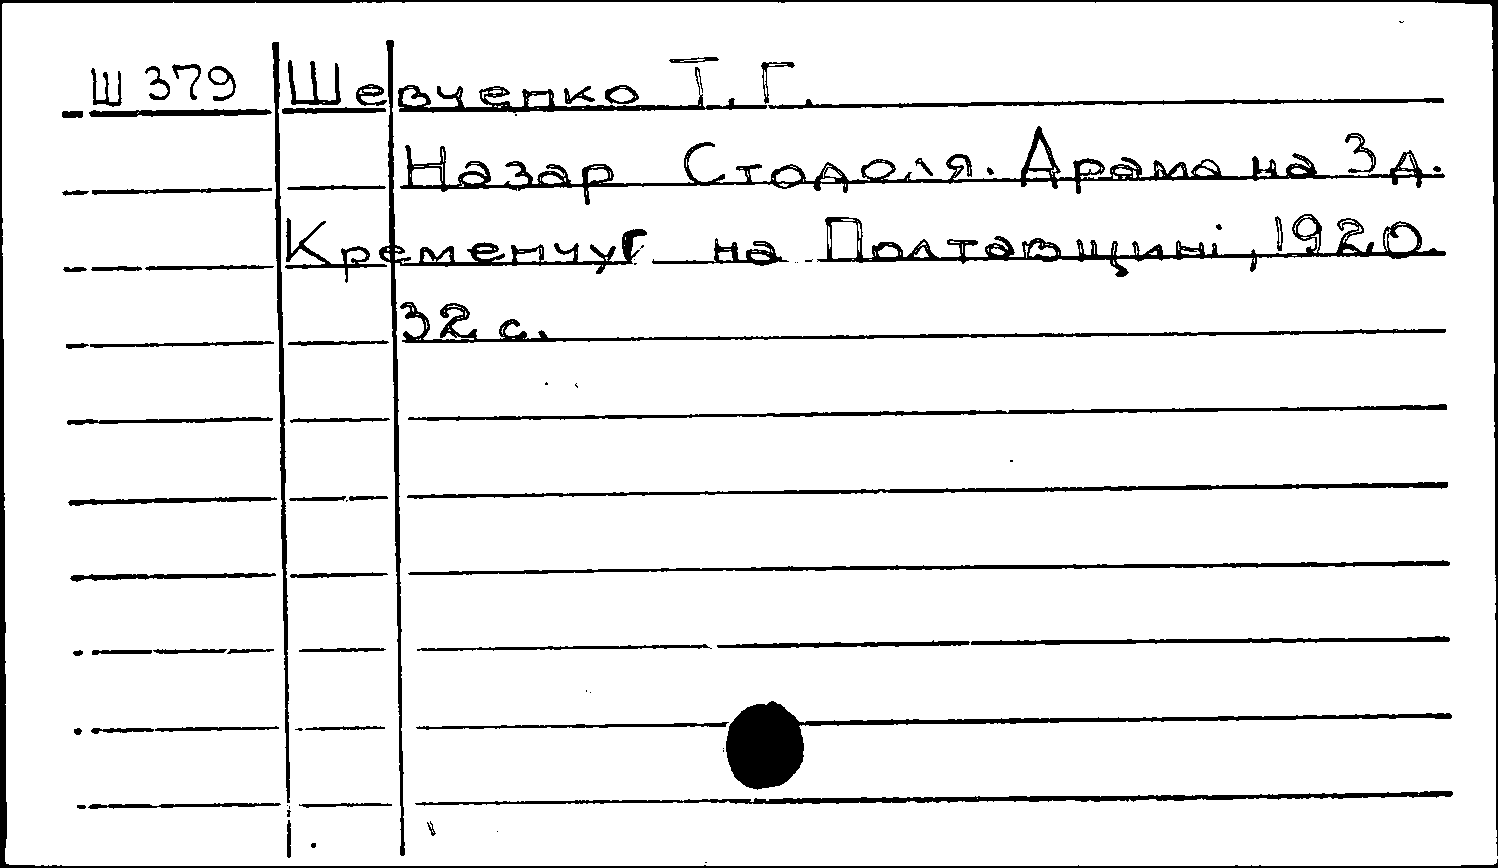 Ш 379 Шевченко Т. Г.
Назар Стодоля. Драма на 3 д.
Кременчуг на Полтавщині, 1920.
32 с.